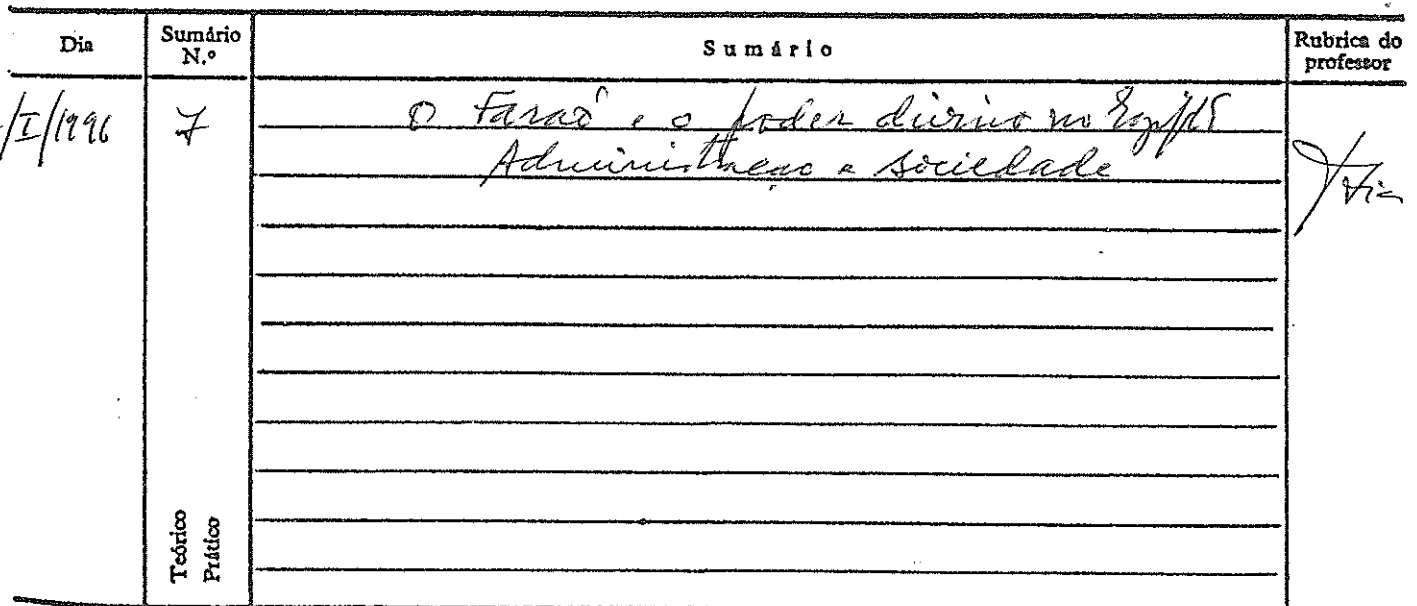 Dia
Sumário N.º
Sumário
Rubrica do professor
/I/1996
7
O Faraó e o poder divino no Egipto
Administração e sociedade
Teórico
Prático